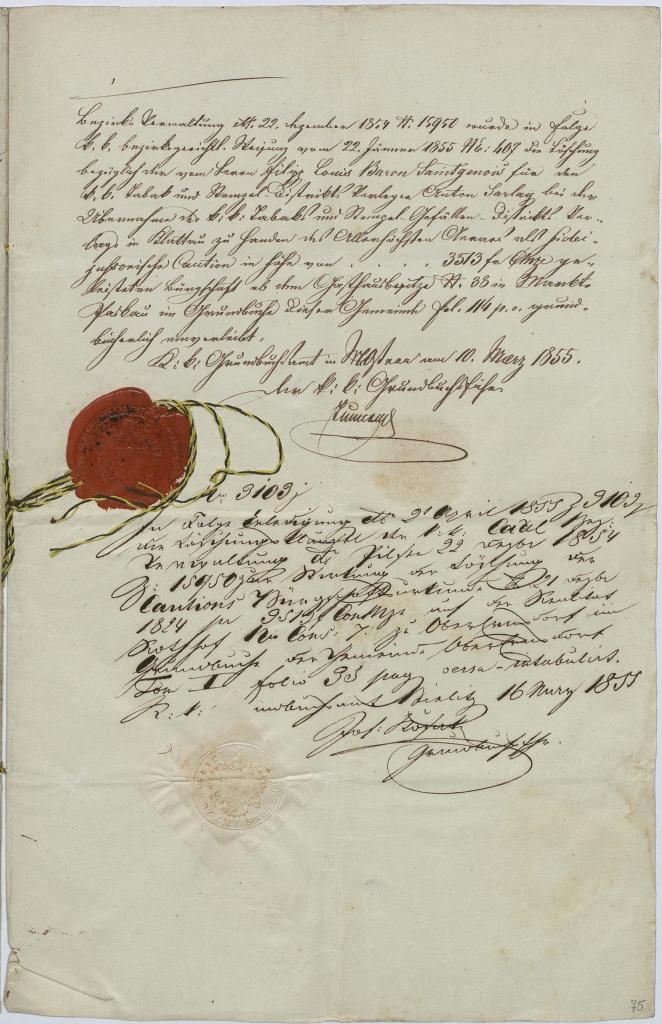 Bezirks Verwaltung dto. 22. Dezember 1854 N: 15950 wurde in Folge
k. k. bezirksgerichtl. Weisung vom 22. Jänner 1855 Nro: 407 die Löschung
bezüglich der vom Herrn Filipp Louis Baron Saintgenois für den
k. k. Tabak und Stempel-Distrikts-Verleger Anton bei der
Übernahme des k: k: Tabak und Stempel-Gefällen-Distrikts-Ver-
lags in Klattau zu Handen des Allerhöchsten Aerars als fidei-
jussorische Caution in Höhe von . . . 3513 fr CMze ge-
leisteten Bürgschaft ob dem Gasthausbesitze N. 38 in Markt
Paskau im Grundbuche dieser Gemeinde fol. 114 p. v. grund-
bücherlich einverleibt.
K: k: Grundbuchsamt in MOstrau am 10. März 1855.
der k: k: Grundbuchsführer
N 3103
In Folge Erledigung dto 2 April 1855 Z 3103
die Löschungs der k. k. Cal Bez:
Verwaltung dto Pilsen 22 Dezbr 1854
Z: 15950 zur der Löschung der
Cautions Bürgschaftsurkunde dto 21 Dezbr
1824 pr 3513 f ConMze auf der Realität
Rothhof Nro Cons. 7. zu im
Grundbuche der Gemeinde
Tom I folio 33 pag versa - intabulirt.
K: k: Bielitz 16 März 1855
Jos:
Grundbuchsfhr.
75